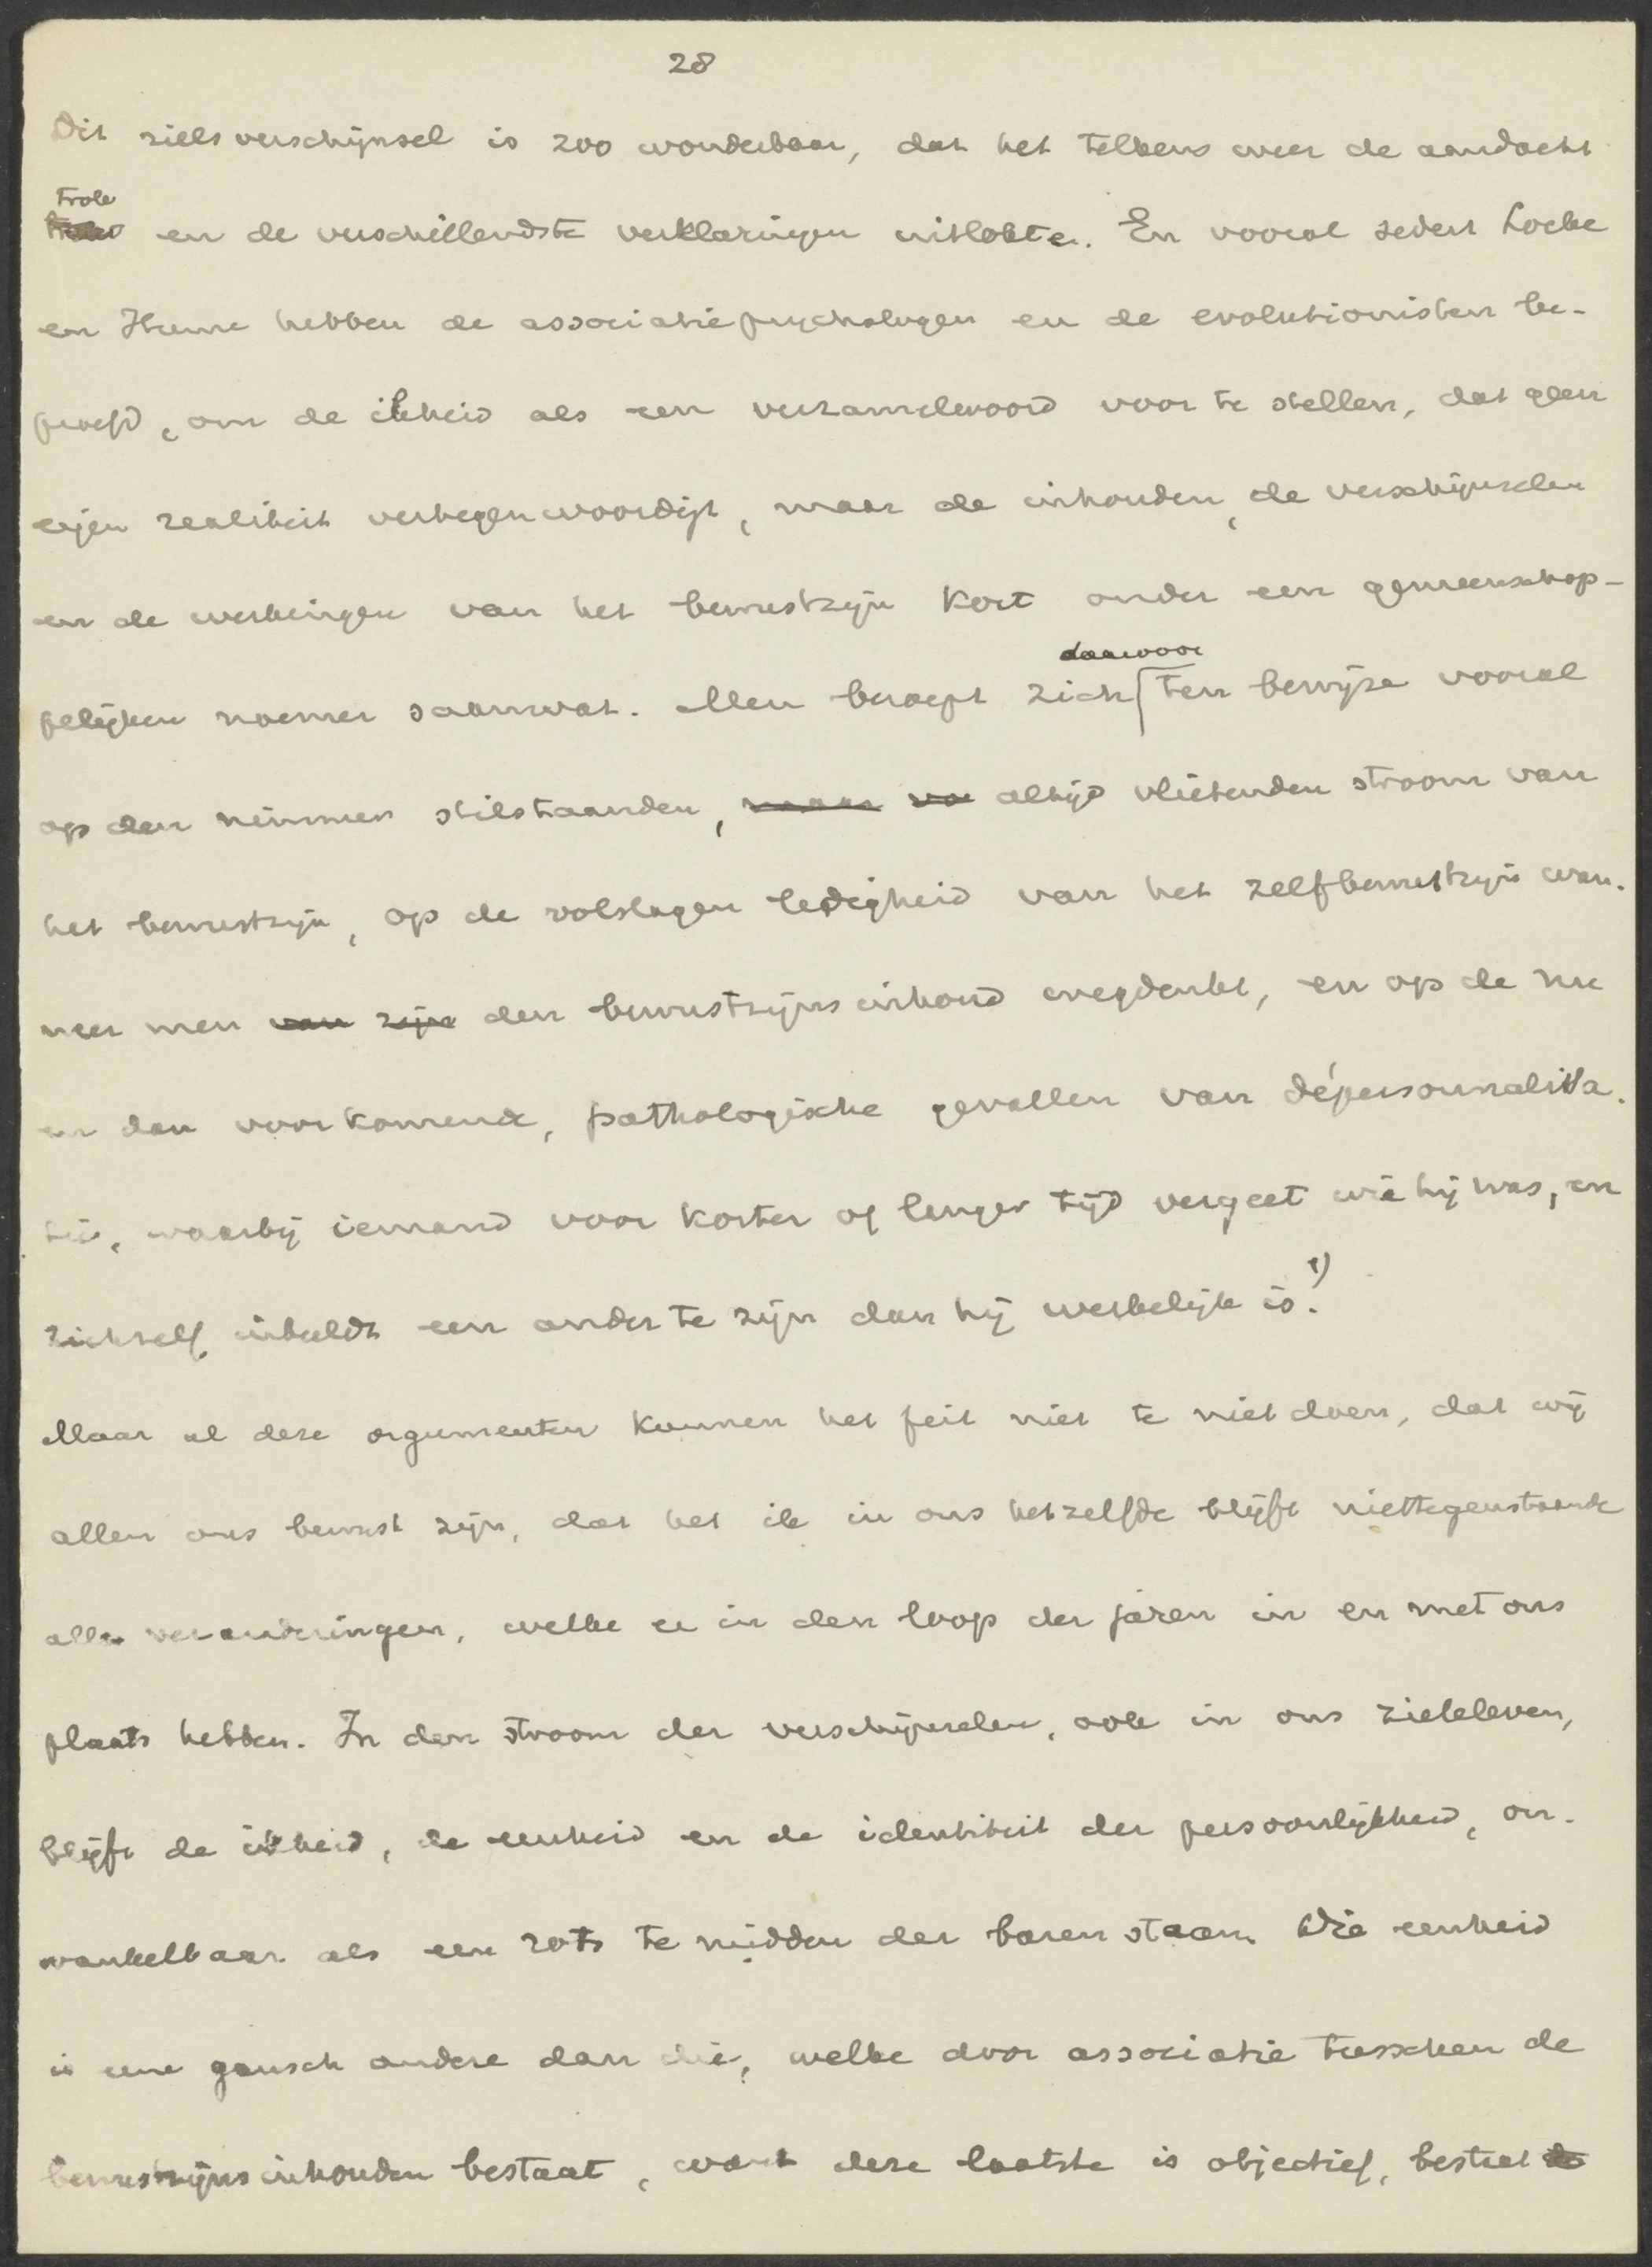 28
Dit zielsverschijnsel is zoo wonderbaar, dat het telkens weer de aandacht
trok
en de verschillendste verklaringen uitlokte. En vooral sedert Locke
en Hume hebben de associatiepsychologen en de evolutionisten be-
proefd, om de ikheid als een verzamelwoord voor te stellen, dat geen
eigen realiteit vertegenwoordigt, maar de inhouden, de verschijnselen
en de werkingen van het bewustzijn kort onder een gemeenschap-
pelijken noemer saamvat. Men beroept zich daarvoor ten bewijze vooral
op den nimmer stilstaanden, maar altijd vlietenden stroom van
het bewustzijn, op de volslagen ledigheid van het zelfbewustzijn wan-
neer men van zijn den bewustzijnsinhoud wegdenkt, en op de nu
en dan voorkomende, pathologische gevallen van dépersonnalisa-
tie, waarbij iemand voor korter of langer tijd vergeet wie hij was, en
zichzelf inbeeldt een ander te zijn dan hij werkelijk is. 1)
Maar al deze argumenten kunnen het feit niet te niet doen, dat wij
allen ons bewust zijn, dat het ik in ons hetzelfde blijft niettegenstaande
alle veranderingen, welke er in den loop der jaren in en met ons
plaats hebben. In den stroom der verschijnselen, ook in ons zieleleven,
blijft de ikheid, de eenheid en de identiteit der persoonlijkheid, on-
wankelbaar als een rots te midden der baren staan. Die eenheid
is eene gansch andere dan die, welke door associatie tusschen de
bewustzijnsinhouden bestaat, want deze laatste is objectief, bestaat